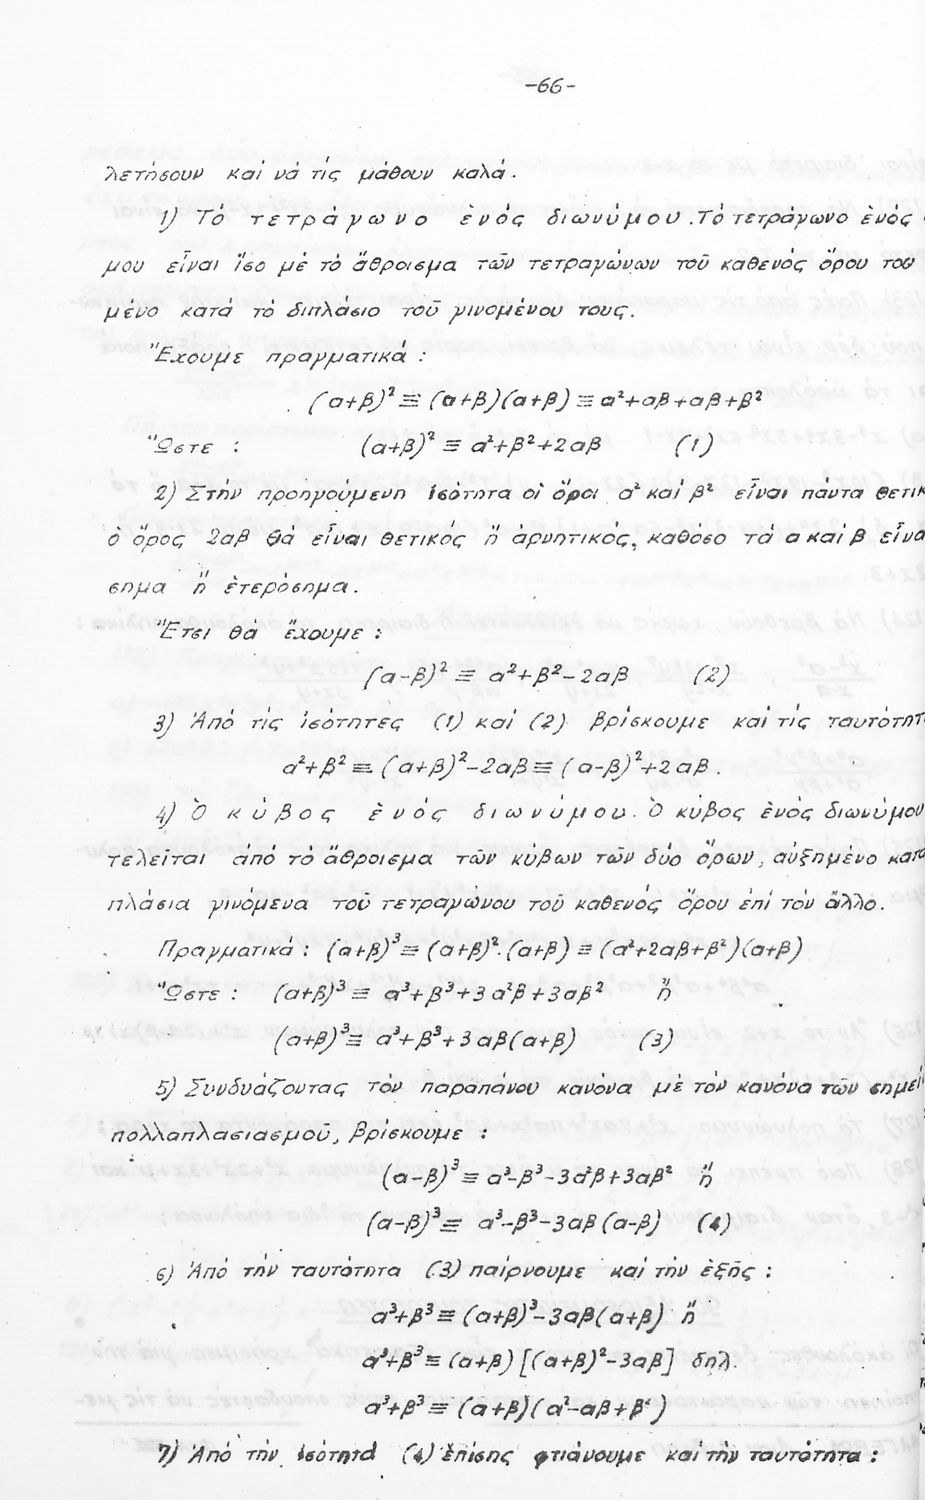 -66-
λετήσουν καί νά τίς μάθουν καλά.
1) Τό τετράγωνο ἑνός διωνύμου. Τό τετράγωνο ἑνός
μου εἶναι ἴσο μέ τό ἄθροισμα τῶν τετραγώνων τοῦ καθενός ὅρου του
μένο κατά τό διπλάσιο τοῦ γινομένου τους.
Ἔχουμε πραγματικά :
(α+β)² ≡ (α+β)(α+β) ≡ α²+αβ+αβ+β²
Ὥστε : (α+β)² ≡ α²+β²+2αβ (1)
2) Στήν προηγούμενη ἰσότητα οἱ ὅροι α² καί β² εἶναι πάντα θετικ
ὁ ὅρος 2αβ θά εἶναι θετικός ἤ ἀρνητικός, καθόσο τά α καί β εἶνα
σημα ἤ ἑτερόσημα.
Ἔτσι θά ἔχουμε :
(α-β)² ≡ α²+β²-2αβ (2)
3) Ἀπό τίς ἰσότητες (1) καί (2) βρίσκουμε καί τίς ταυτότητ
α²+β² ≡ (α+β)²-2αβ ≡ (α-β)²+2αβ.
4) Ὁ κύβος ἑνός διωνύμου. Ὁ κύβος ἑνός διωνύμου
τελεῖται ἀπό τό ἄθροισμα τῶν κύβων τῶν δύο ὅρων, αὐξημένο κατά
πλάσια γινόμενα τοῦ τετραγώνου τοῦ καθενός ὅρου ἐπί τόν ἄλλο.
Πραγματικά : (α+β)³ ≡ (α+β)².(α+β) ≡ (α²+2αβ+β²)(α+β)
Ὥστε : (α+β)³ ≡ α³+β³+3α²β+3αβ² ἤ
(α+β)³ ≡ α³+β³+3αβ(α+β) (3)
5) Συνδυάζοντας τόν παραπάνου κανόνα μέ τόν κανόνα τῶν σημεί
πολλαπλασιασμοῦ, βρίσκουμε :
(α-β)³ ≡ α³-β³-3α²β+3αβ² ἤ
(α-β)³ ≡ α³-β³-3αβ(α-β) (4)
6) Ἀπό τήν ταυτότητα (3) παίρνουμε καί τήν ἑξῆς :
α³+β³ ≡ (α+β)³-3αβ(α+β) ἤ
α³+β³ ≡ (α+β)[(α+β)²-3αβ] δηλ.
α³+β³ ≡ (α+β)(α²-αβ+β²)
7) Ἀπό τήν ἰσότητα (4) ἐπίσης φτιάνουμε καί τήν ταυτότητα :